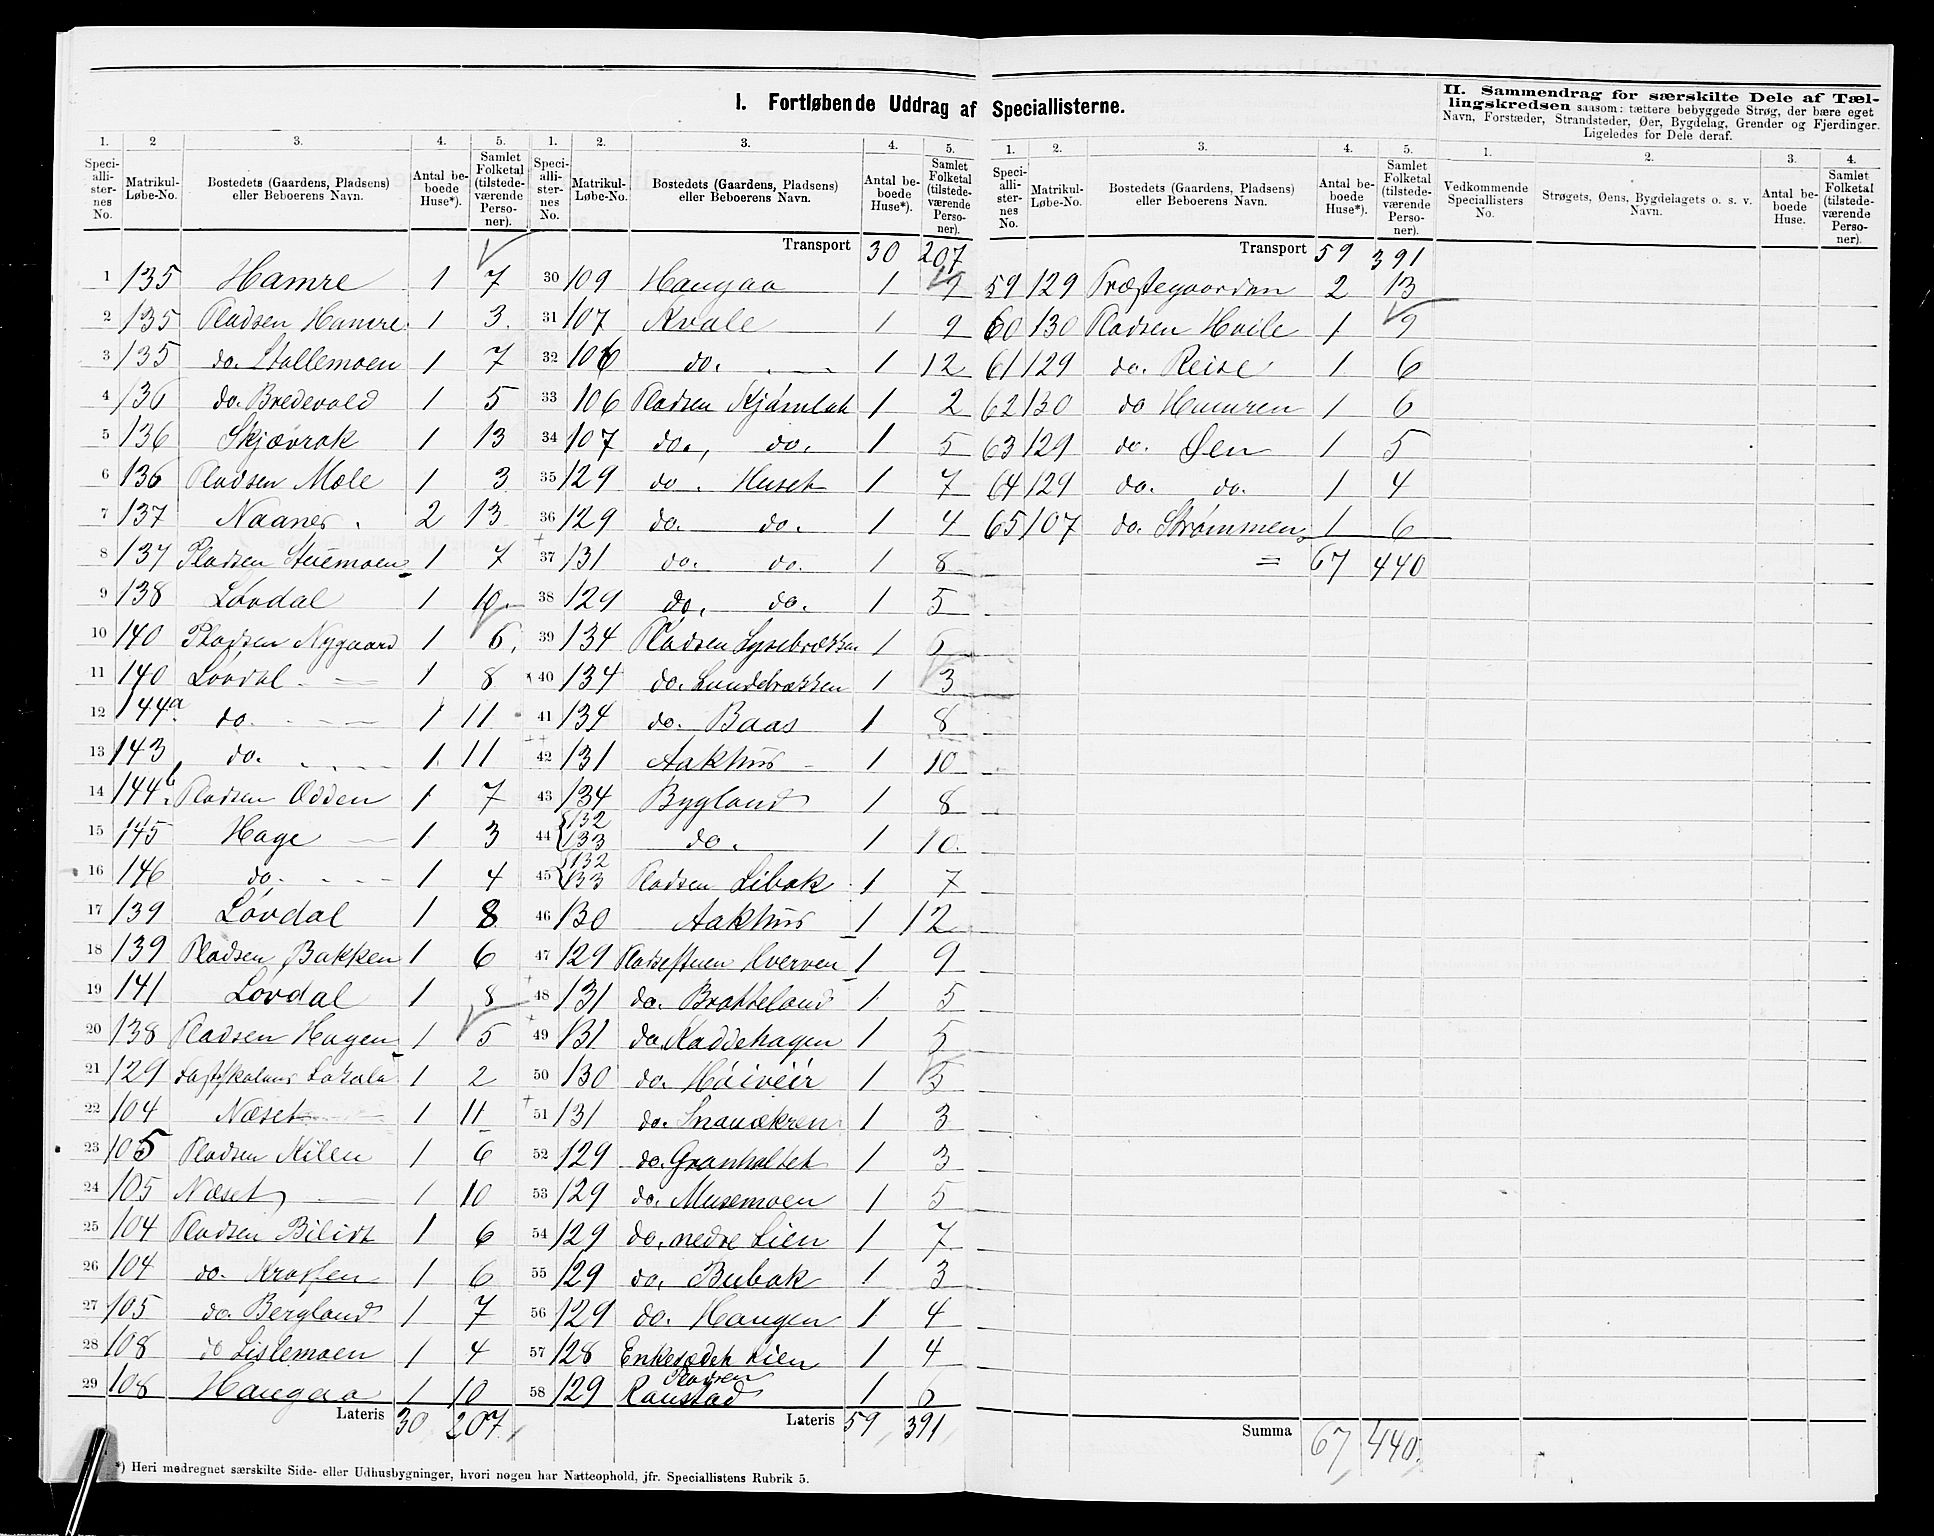 I. Fortløbende Uddrag af Speciallisterne.
1. 2 3. 4. 5.
Speciallisternes No. Matrikul-Løbe-No. Bostedets (Gaardens, Pladsens) eller Beboerens Navn. Antal beboede Huse*). Samlet Folketal (tilstedeværende Personer).
1 135 Hamre 1 7
2 135 Pladsen Hamre 1 3
3 135 do. Stallemoen 1 7
4 136 do. Bredevold 1 5
5 136 Skjævrak 1 13
6 136 Pladsen Mole 1 3
7 137 Naanes 2 13
8 137 Pladsen Stuemoen 1 7
9 138 Lovdal 1 10
10 140 Pladsen Nygaard 1 6
11 140 Lovdal 1 8
12 144a do. 1 11
13 143 do. 1 11
14 144b Pladsen Odden 1 7
15 145 Hage 1 3
16 146 do. 1 4
17 139 Lovdal 1 8
18 139 Pladsen Bakken 1 6
19 141 Lovdal 1 8
20 138 Pladsen Hagen 1 5
21 129 Lokale 1 2
22 104 Næset 1 11
23 105 Pladsen Kilen 1 6
24 105 Næset 1 10
25 104 Pladsen Bilidt 1 6
26 104 do. Krossen 1 6
27 105 do. Bergland 1 7
28 108 do Lislemoen 1 4
29 108 Haugaa 1 10
Lateris 30 207
*) Heri medregnet særskilte Side- eller Udhusbygninger, hvori nogen har Natteophold, jfr. Speciallistens Rubrik 5.
1. 2. 3. 4. 5.
Speciallisternes No. Matrikul-Løbe-No. Bostedets (Gaardens, Pladsens) eller Beboerens Navn. Antal beboede Huse*). Samlet Folketal (tilstedeværende Personer).
Transport 30 207
30 109 Haugaa 1 9
31 107 Kvale 1 9
32 106 do. 1 12
33 106 Pladsen 1 2
34 107 do. do. 1 5
35 129 do. Huset 1 7
36 129 do. do. 1 4
37 131 do. do. 1 8
38 129 do. do. 1 5
39 134 Pladsen Lysebrække 1
40 134 do. Lundebrækken 1 3
41 134 do. Baas 1 8
42 131 Aakhus 1 10
43 134 Bygland 1 8
44 132 133 do. 1 10
45 132 133 Pladsen Libak 1 7
46 130 Aakhus 1 12
47 129 Hverven 1 9
48 131 do. Bratteland 1 5
49 131 do. Kaddehagen 1 5
50 130 do. 1 5
51 131 do. Snauækren 1 3
52 129 do. Granholtet 1 3
53 129 do. Musemoen 1 5
54 129 do. nedre Lien 1 7
55 129 do. Bubak 1 3
56 129 do. Haugen 1 4
57 128 Enkesædet Lien 1 4
58 129 Pladsen Raustad 1 6
Lateris 59 391
1. 2. 3. 4. 5.
Speciallisternes No. Matrikul-Løbe-No. Bostedets (Gaardens, Pladsens) eller Beboerens Navn. Antal beboede Huse*). Samlet Folketal (tilstedeværende Personer).
Transport 59 391
59 129 Præstegaarden 2 13
60 130 Pladsen Hvile 1 9
61 129 do. Reise 1 6
62 130 do Hamren 1 6
63 129 do. Øen 1 5
64 129 do. do. 1 4
65 107 do. Strømmen 1 6
= 67 440
Summa 67 440
II. Sammendrag for særskilte Dele af Tællingskredsen saasom: tættere bebyggede Strøg, der bære eget
Navn, Forstæder, Strandsteder, Øer, Bygdelag, Grender og Fjerdinger.
Ligeledes for Dele deraf.
1. 2. 3. 4.
Vedkommende Speciallisters No. Strøgets, Øens, Bygdelagets o. s. v. Navn. Antal beboede Huse. Samlet Folketal (tilstedeværende Personer).